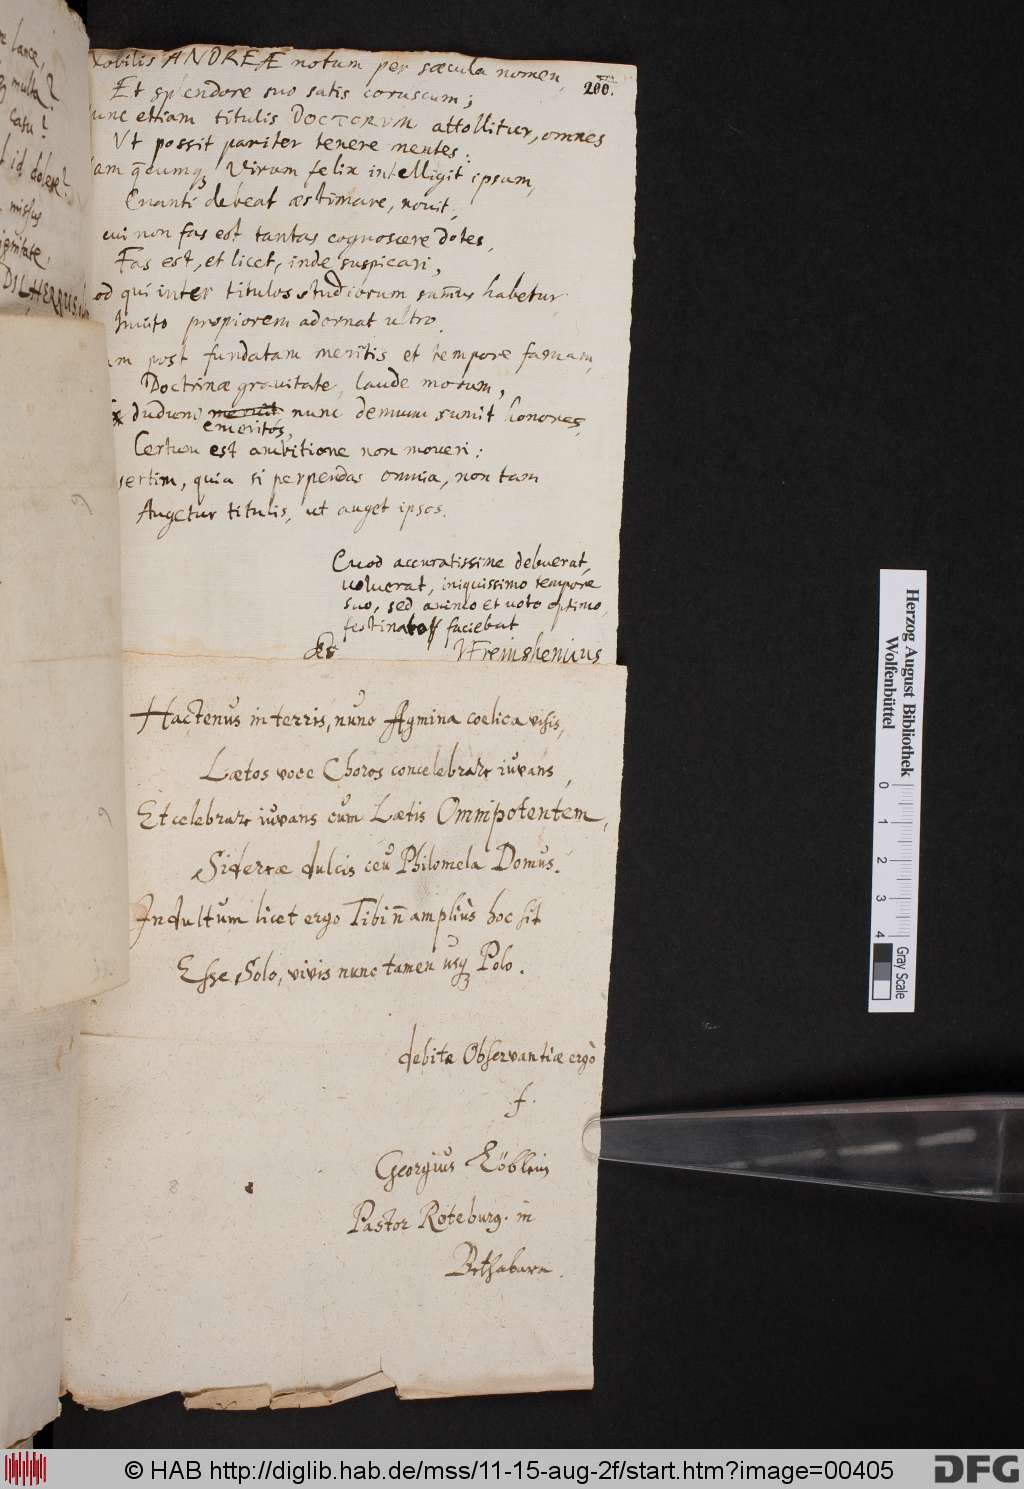 lance,
multa?
casu?
id dolere?
missus
ignitate,
DILHERRUS
200.
Nobilis ANDREÆ notum per sæcula nomen,
Et splendore suo satis coruscum;
unc etiam titulis DOCTORVM attollitur, omnes
Vt possit pariter tenere mentes:
am q̄cumq; Virum felix intelligit ipsum,
Quanti debeat æstimare, novit;
cui non fas est tantas cognoscere dotes,
Fas est, et licet, inde suspicari,
od qui inter titulos studiorum sum̄us habetur
Inuito propiorem adornat ultro.
um post fundatam meritis et tempore famam,
Doctrinæ gravitate, laude morum,
dudum meruit nunc demum sumit honores,
emeritos,
Certum est ambitione non moveri:
sertim, quia si perpendas omnia, non tam
Augetur titulis, ut auget ipsos.
Quod accuratissime debuerat,
voluerat, iniquissimo tempore
suo, sed animo et voto optimo,
faciebat
Freinshemius
Hactenus in terris, nunc Agmina coelica visis,
Lætos voce Choros concelebrare iuvans,
Et celebrare iuvans cum Lætis Omnipotentem,
Sidereæ dulcis ceu Philomela Domus.
Indultum licet ergo Tibi n̄ amplius hoc sit
Esse Solo, vivis nunc tamen usq; Polo.
debitæ Observantiæ ergò
f.
Georgius
Pastor Roteburg. in
Bethabara.
Herzog August Bibliothek
Wolfenbüttel
0 1 2 3 4
Gray Scale
© HAB http://diglib.hab.de/mss/11-15-aug-2f/start.htm?image=00405
DFG